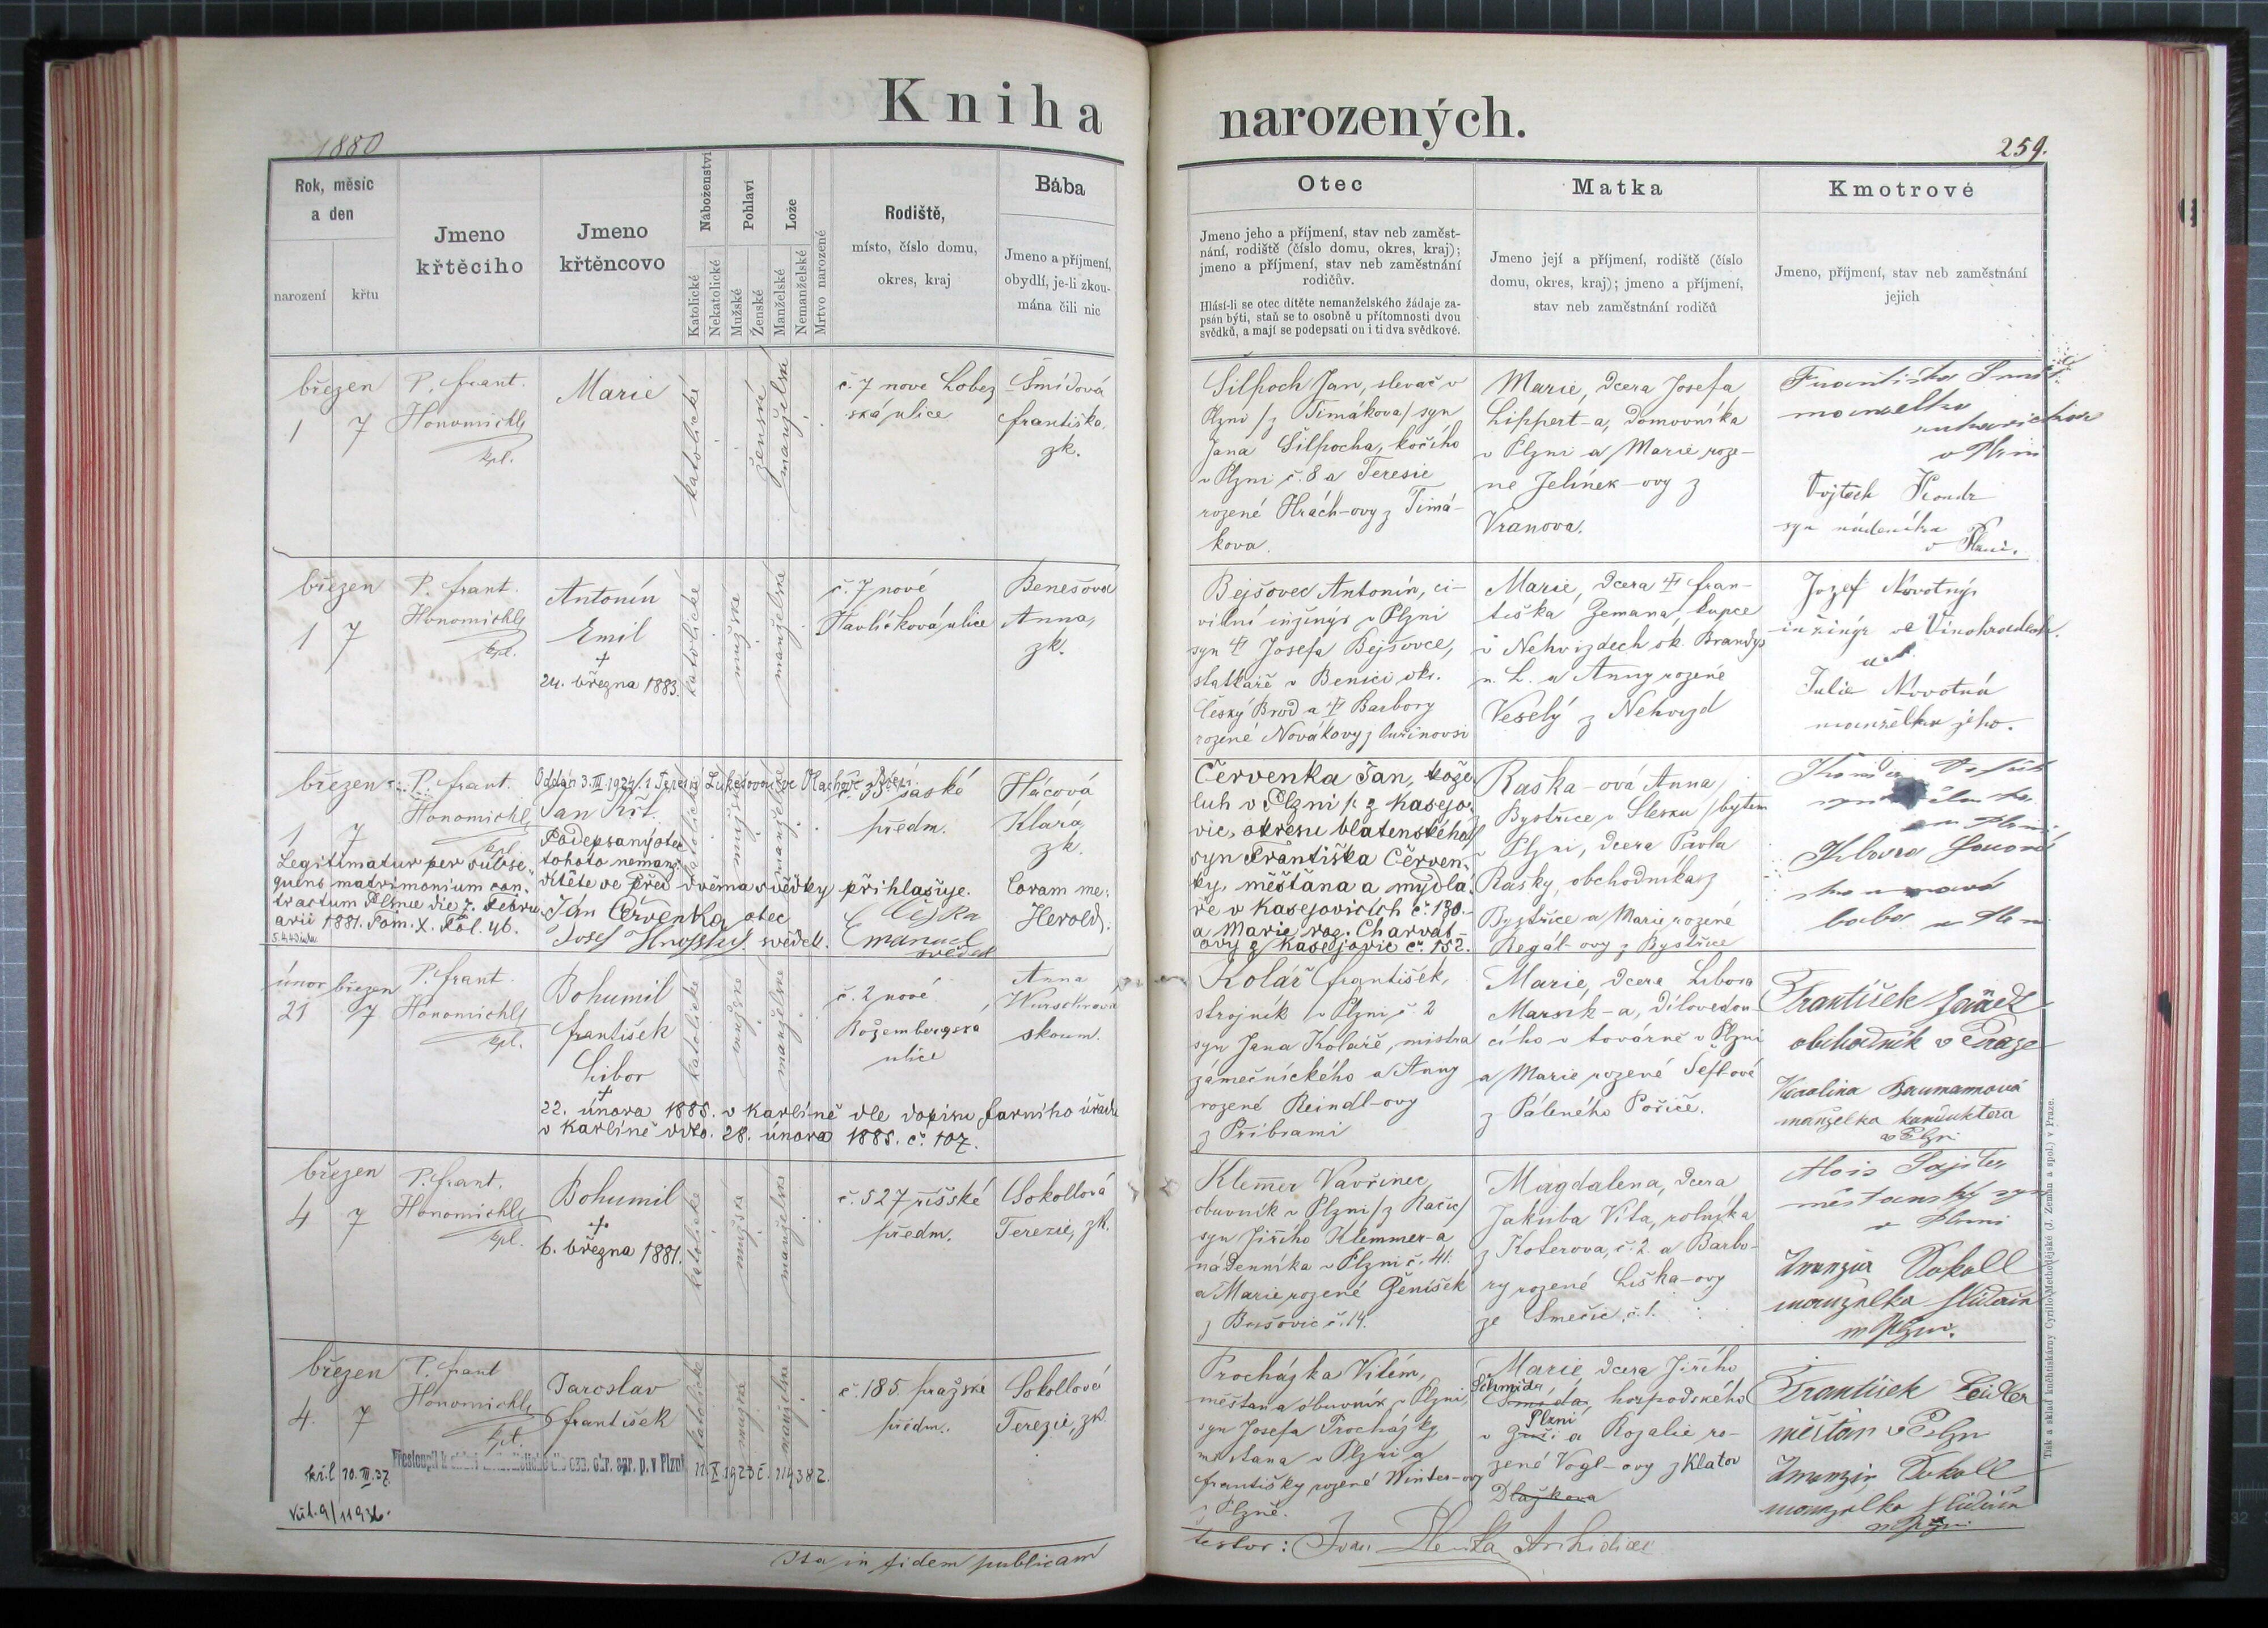 Kniha
narozených.
1880
259.
Rok, měsíc
a den
narození
křtu
Jmeno
křtěcího
Jmeno
křtěncovo
Náboženství
Katolické
Nekatolické
Pohlaví
Mužské
Ženské
Lože
Manželské
Nemanželské
Mrtvo narozené
Rodiště,
místo, číslo domu,
okres, kraj
Bába
Jmeno a příjmení,
obydlí, je-li zkou-
mána čili nic
Otec
Jmeno jeho a příjmení, stav neb zaměst-
nání, rodiště (číslo domu, okres, kraj);
jmeno a příjmení, stav neb zaměstnání
rodičův.
Hlásí-li se otec dítěte nemanželského žádaje za-
psán býti, staň se to osobně u přítomnosti dvou
svědků, a mají se podepsati on i ti dva svědkové.
Matka
Jmeno její a příjmení, rodiště (číslo
domu, okres, kraj); jmeno a příjmení,
stav neb zaměstnání rodičů
Kmotrové
Jmeno, příjmení, stav neb zaměstnání
jejich
březen
1 7
P. frant.
Honomichl
kpl.
Marie
katolické
ženské
manželské
č. 7 nové Lobez
ská ulice
Šmídová
františka,
zk.
Silpoch Jan, slevač v
Plzni /z Timákova/ syn
Jana Silpocha, kočího
v Plzni č. 8 a Teresie
rozené Hrách-ovy z Timá-
kova.
Marie, dcera Josefa
Lippert-a, domovníka
v Plzni a Marie roze-
né Jelínek-ovy z
Vranova.
Františka
manželka
v Plzni
Vojtěch
syn nádeníka
v Plzni.
březen
1 7
P. frant.
Honomichl
kpl.
Antonín
Emil
+
24. března 1883.
katolické
mužské
manželské
č. 7 nové
Havlíčkova ulice
Benešová
Anna,
zk.
Bejšovec Antonín, ci-
vilní inžinýr v Plzni
syn Josefa Bejšovce,
statkáře v Benici okr.
Český Brod a Barbory
rozené Novákovy z Ouřinovsi
Marie, dcera fran-
tiška Zemana, kupce
v Nehvizdech ok. Brandýs
n. L. a Anny rozené
Veselý z Nehvizd
Josef Novotný
inžinýr ve Vinohradech.
a
Julie Novotná
manželka jeho.
březen
1 7
P. frant.
Honomichl
kpl.
Oddán 3. III. 1924
Jan Křt.
katolické
mužské
manželské
č. 35 saské
předm.
Hácová
Klara,
zk.
Legitimatur per subse-
quens matrimonium con-
tractum Plsnae die 7. Febru-
arii 1881. Tom. X. Fol. 46.
Podepsaný otec
tohoto nemanž.
dítěte se před dvěma svědky přihlašuje.
Jan Červenka otec
Josef svědek.
Emanuel
svědek
Coram me:
Herold.
Červenka Jan, kože-
luh v Plzni /: z Kasejo-
vic, okresu blatenského/
syn Františka Červen-
ky, měšťana a mydlá-
ře v Kasejovicích č. 130.
a Marie roz. Charvát-
ovy z Kasejovic č. 152.
Raška-ová Anna
Bystřice v Slesku /bytem
v Plzni, dcera Pavla
Rašky, obchodníka z
Bystřice a Marie rozené
Regát-ovy z Bystřice
Klara
zkoumaná
bába v Plzni
únor březen
21 7
P. frant.
Honomichl
kpl.
Bohumil
františek
Libor
+
22. února 1885. v Karlíně dle dopisu farního úřadu
v Karlíně ddto. 28. února 1885. č. 107.
katolické
mužské
manželské
č. 2 nové
Rožembergská
ulice
Anna
skoum.
Kolář františek,
strojník v Plzni č. 2
syn Jana Koláře, mistra
zámečnického a Anny
rozené Reindl-ovy
z Příbrami
Marie, dcera Libora
Marsík-a, dílovedou-
cího v továrně v Plzni
a Marie rozené Šefl-ové
z Páleného Poříčí.
František
obchodník v Praze
Karolina Baumamová
manželka konduktera
v Plzni
březen
4 7
P. frant.
Honomichl
kpl.
Bohumil
+
6. března 1881.
katolické
mužské
manželské
č. 527 říšské
předm.
Sokollová
Terezie, zk.
Klemmer Vavřinec,
obuvník v Plzni /z Račic/
syn Jiřího Klemmer-a
nádenníka v Plzni č. 41.
a Marie rozené Ženíšek
z Bušovic č. 14.
Magdalena, dcera
Jakuba Víta, rolníka
z Koterova, č. 2. a Barbo-
ry rozené Liška-ovy
ze Smečic, č. 1.
Alois
městanský syn
v Plzni
Sokoll
březen
4. 7
P. frant
Honomichl
kpl.
Jaroslav
františek
katolické
mužské
manželské
č. 185. pražské
předm.
Sokollová
Terezie, zk.
Procházka Vilém,
měštan a obuvník v Plzni,
syn Josefa Procházky
měštana v Plzni a
františky rozené Winter-ovy
z Plzně.
Marie, dcera Jiřího
Schmida, hospodského
v Plzni a Rozalie ro-
zené Vogl-ovy z Klatov
František
měšťan v Plzni
Sokoll
kř. l. 10. III. 37.
11. X. 1923 č. 114382.
Ita in fidem publicam
testor:
Tisk a sklad kněhtiskárny Cyrillo-Methodějské (J. Zeman a spol.) v Praze.